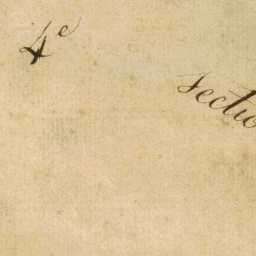 4e sectio